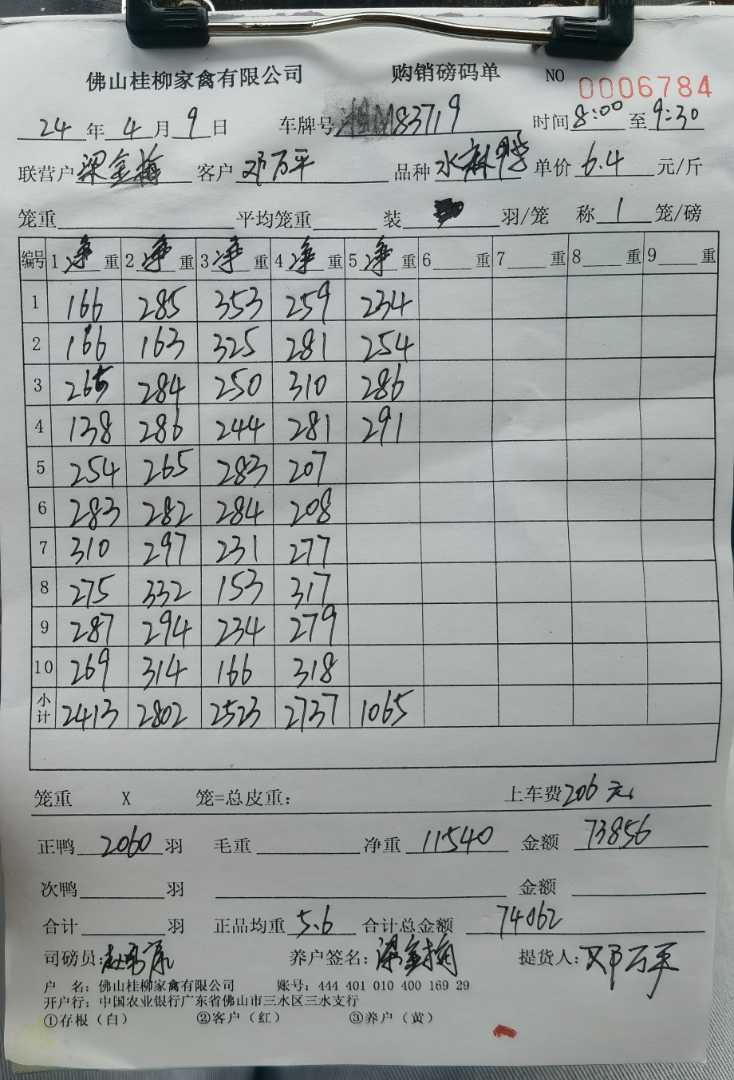 佛山桂柳家禽有限公司 购销磅码单 NO 0006784
24 年 4 月 9 日 车牌号 83719 时间 8:00 至 9:30
联营户 梁金梅 客户 邓万平 品种 水 单价 6.4 元/斤
笼重 平均笼重 装 羽/笼 称 1 笼/磅
编号 1 净 重 2 净 重 3 净 重 4 净 重 5 净 重 6 重 7 重 8 重 9 重
1 166 285 353 259 234
2 166 163 325 281 254
3 265 284 250 310 286
4 138 286 244 281 291
5 254 265 283 207
6 283 282 284 208
7 310 297 231 277
8 275 332 153 317
9 287 294 234 279
10 269 314 166 318
小计 2413 2802 2523 2737 1065
笼重 X 笼=总皮重: 上车费 206 元
正鸭 2060 羽 毛重 净重 11540 金额 73856
次鸭 羽 金额
合计 羽 正品均重 5.6 合计总金额 74062
司磅员: 养户签名: 梁金梅 提货人: 邓万平
户 名: 佛山桂柳家禽有限公司 账号: 444 401 010 400 169 29
开户行: 中国农业银行广东省佛山市三水区三水支行
①存根（白） ②客户（红） ③养户（黄）